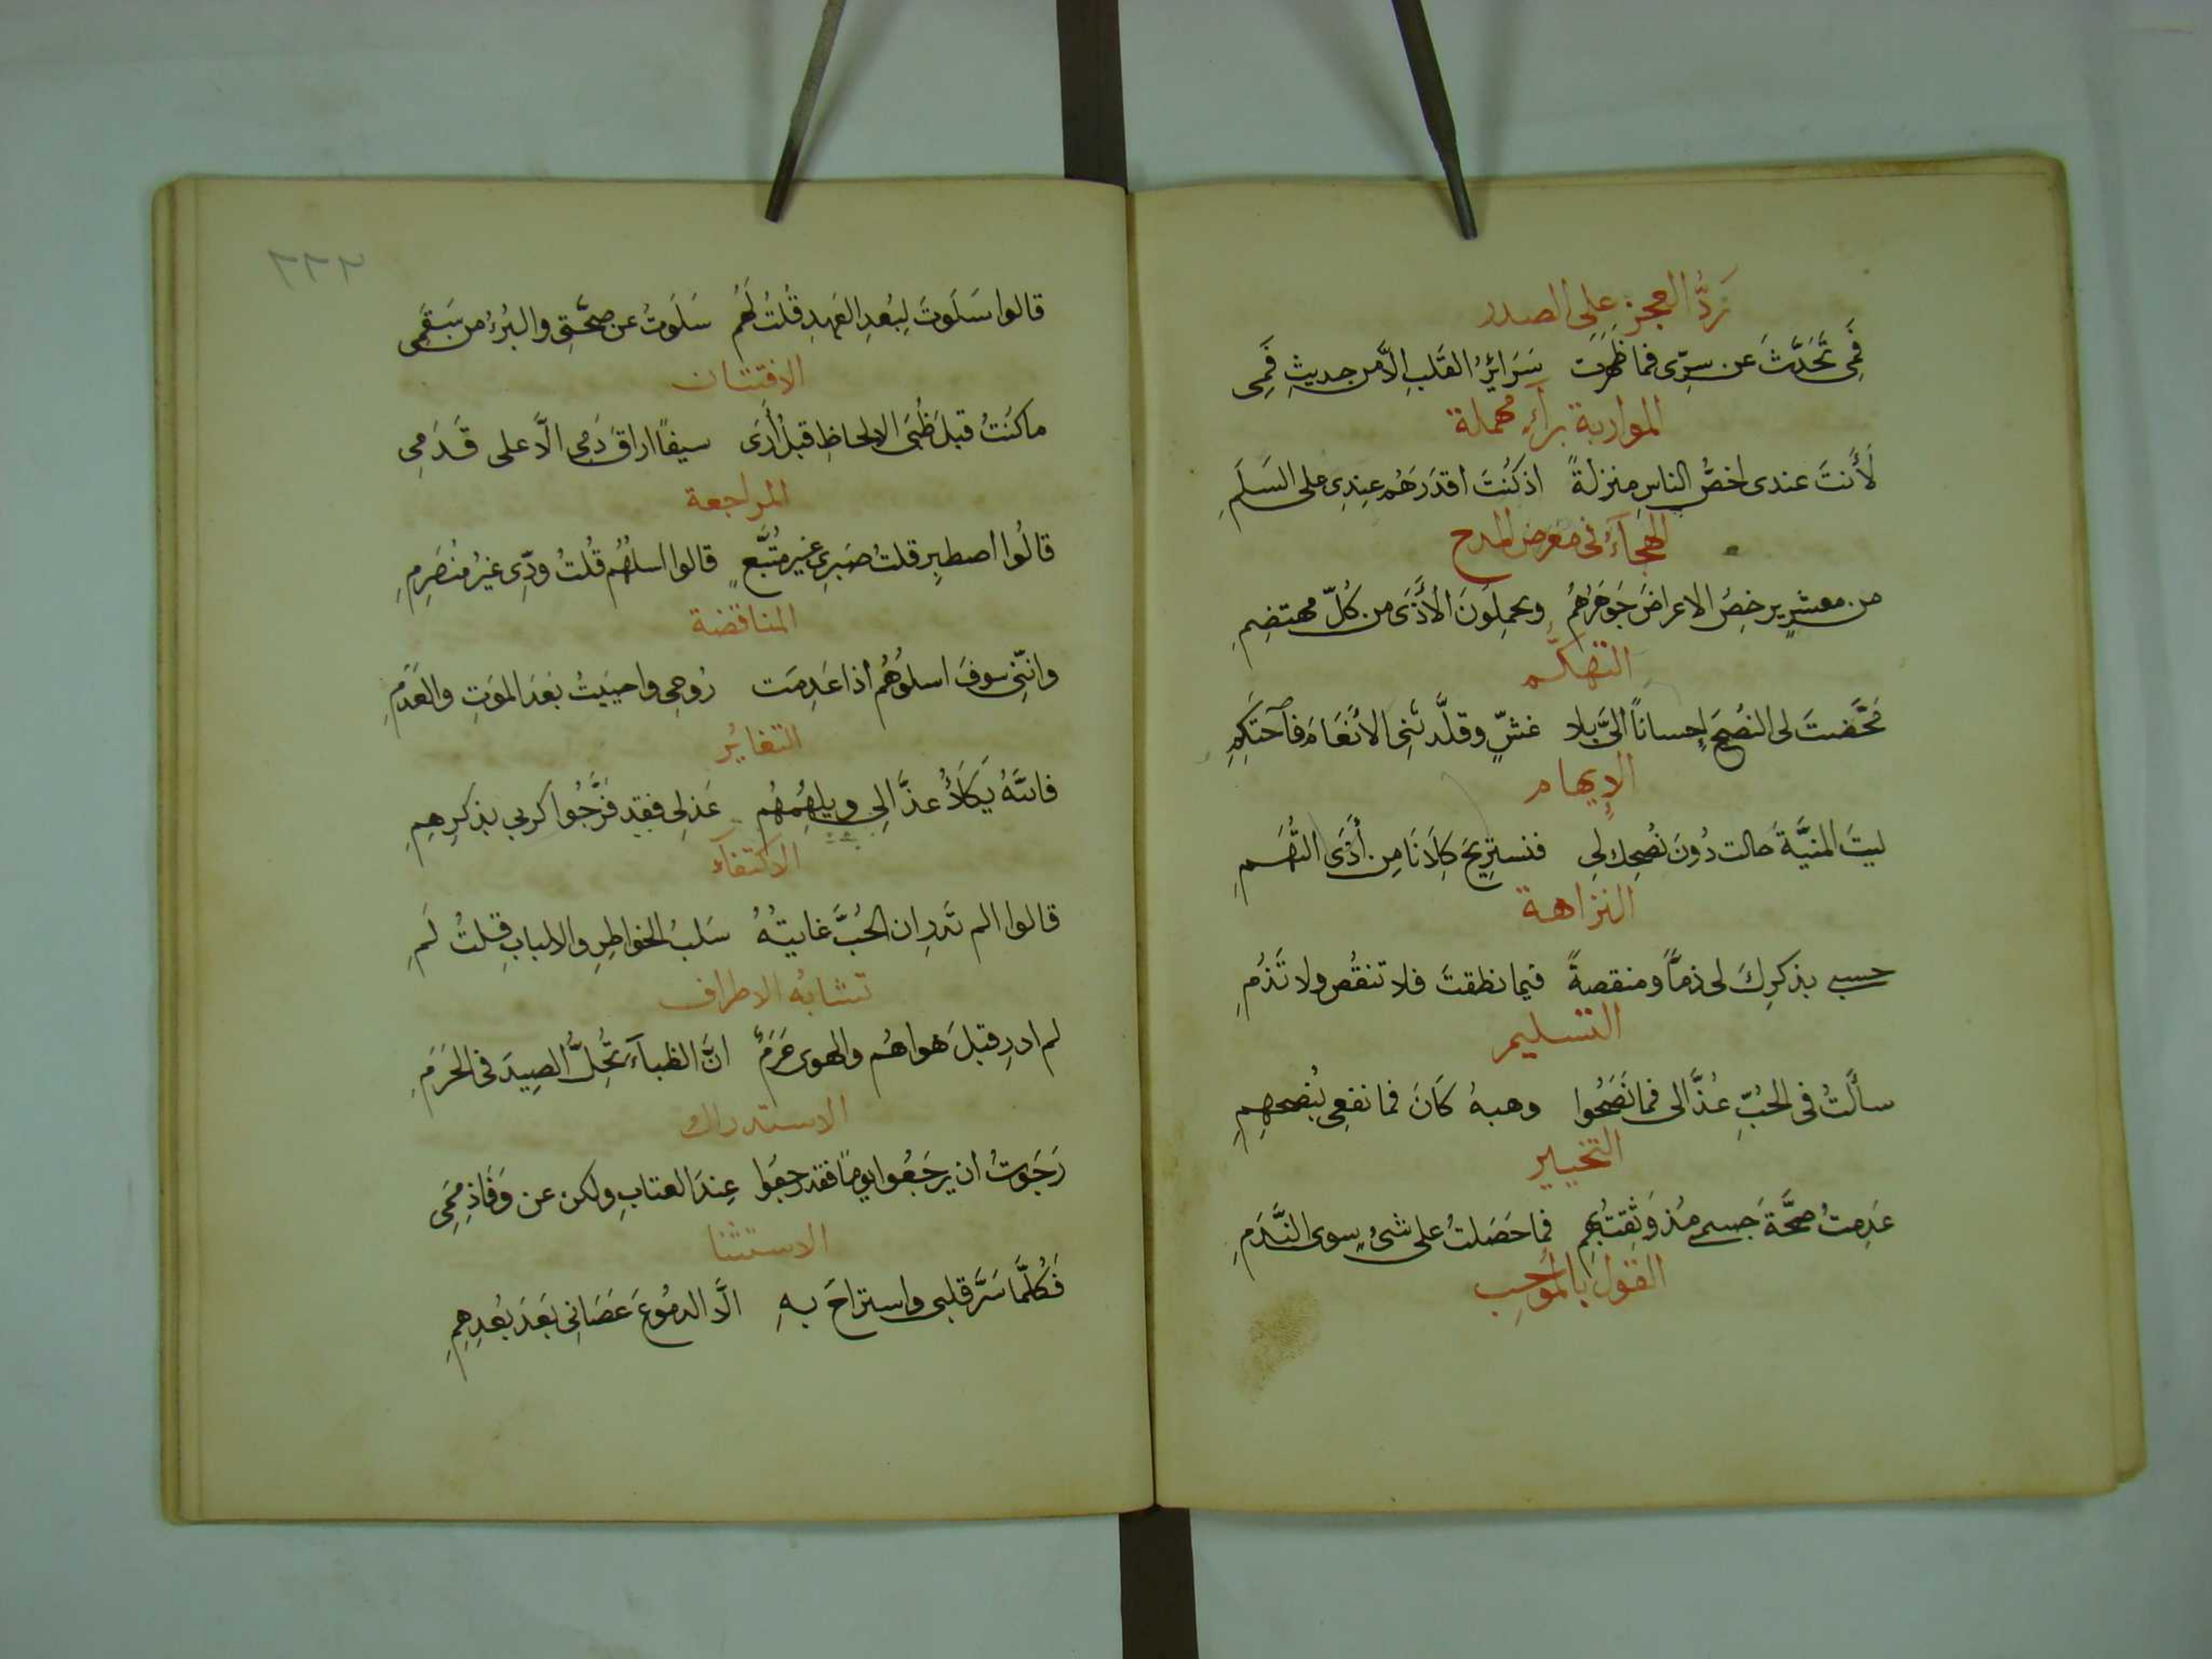 رَدُّ العجز على الصدر
فَمِى تَحَدَّثَ عن سِرّى فما ظَهَرَت سَرَائِرُ القَلبِ الاَّ من حديثِ فَمِى
المواربة برآءٍ مهملة
لَأَنتَ عندى اخصُّ الناسِ منزلةً اذ كُنتَ اقدَرَهُم عِندِى على السَلَمِ
الهجآءُ فى مَعرَض المدح
من معشرٍ يرخصُ الاعراضَ جَوهَرُهُمُ ويحملونَ الأَذَى من كُلّ مهتضِمِ
التهكّم
مَحَّضتَ لى النُصحَ اِحساناً الىَّ بلا غشٍّ وقلَّدتَنِى الأَنعَامَ فآحتَكِمِ
الإيهام
ليتَ المنيَّةَ حالت دُونَ نُصحِك لِى فنستَرِيحَ كِلاَنَا مِن أَذَى التُهَمِ
النزاهة
حسبى بذكرِكَ لى ذمّاً ومنقصةً فيما نطقتَ فلا تنقُص ولا تَذُمِ
التسليم
سألتُ فى الحُبِّ عُذَّالى فما نَصَحُوا وهبهُ كَانَ فما نفعِى بُنصحهِمِ
التخيير
عَدِمتُ صحَّةَ جسمى مُذ وَثِقتُ بهِم فما حَصَلتُ على شىءٍ سوى النَّدَمِ
القول بالمُوجِب
٢٢٢
قالوا سَلَوتَ لِبُعدِ العَهدِ قُلتُ لَهُم سَلَوتُ عن صِحَّتِى والبُرءُ من سَقَمِى
الافتتان
ما كنتُ قبلَ ظُبَى الالحاظِ قبلُ أَرَى سيفًا اراقَ دَمِى الَّا على قَدَمِى
المراجعة
قالُوا اصطبِر قلتُ صَبرِى غيرُ مُتَّبَعٍ قالوا اسلُهُم قُلتُ ودِّى غيرُ مُنصَرِمِ
المناقضة
وانّنِى سوفَ اسلُوهُم اذا عَدِمَت رُوحِى واحيَيتُ بَعدَ المَوتِ والعَدَمِ
التغايُر
فاللهُ يَكلَأُ عذَّالِى ويلهِمُهُم عَذلِى فقد فَرَّجُوا كربى بذكرِهِمِ
الاكتفآء
قالوا الم تَدرِ ان الحُبَّ غايتُهُ سَلبُ الخواطِرِ والالبابِ قلتُ لَمِ
تشابُه الاطراف
لم ادرِ قبلَ هواهُم والهوى حَرَمٌ انَّ الظبآءَ تُحِلُّ الصيدَ فى الحَرَمِ
الاستدراك
رَجَوتُ ان يرجَعُوا يومًا فقد رجعُوا عِندَ العتابِ ولكن عن وَفَاذِمَمِى
الاستثنا
فكُلَّمَا سَرَّ قلبى واستراحَ بهِ الَّا الدمُوعَ عَصَانِى بَعدَ بُعدِهِمِ